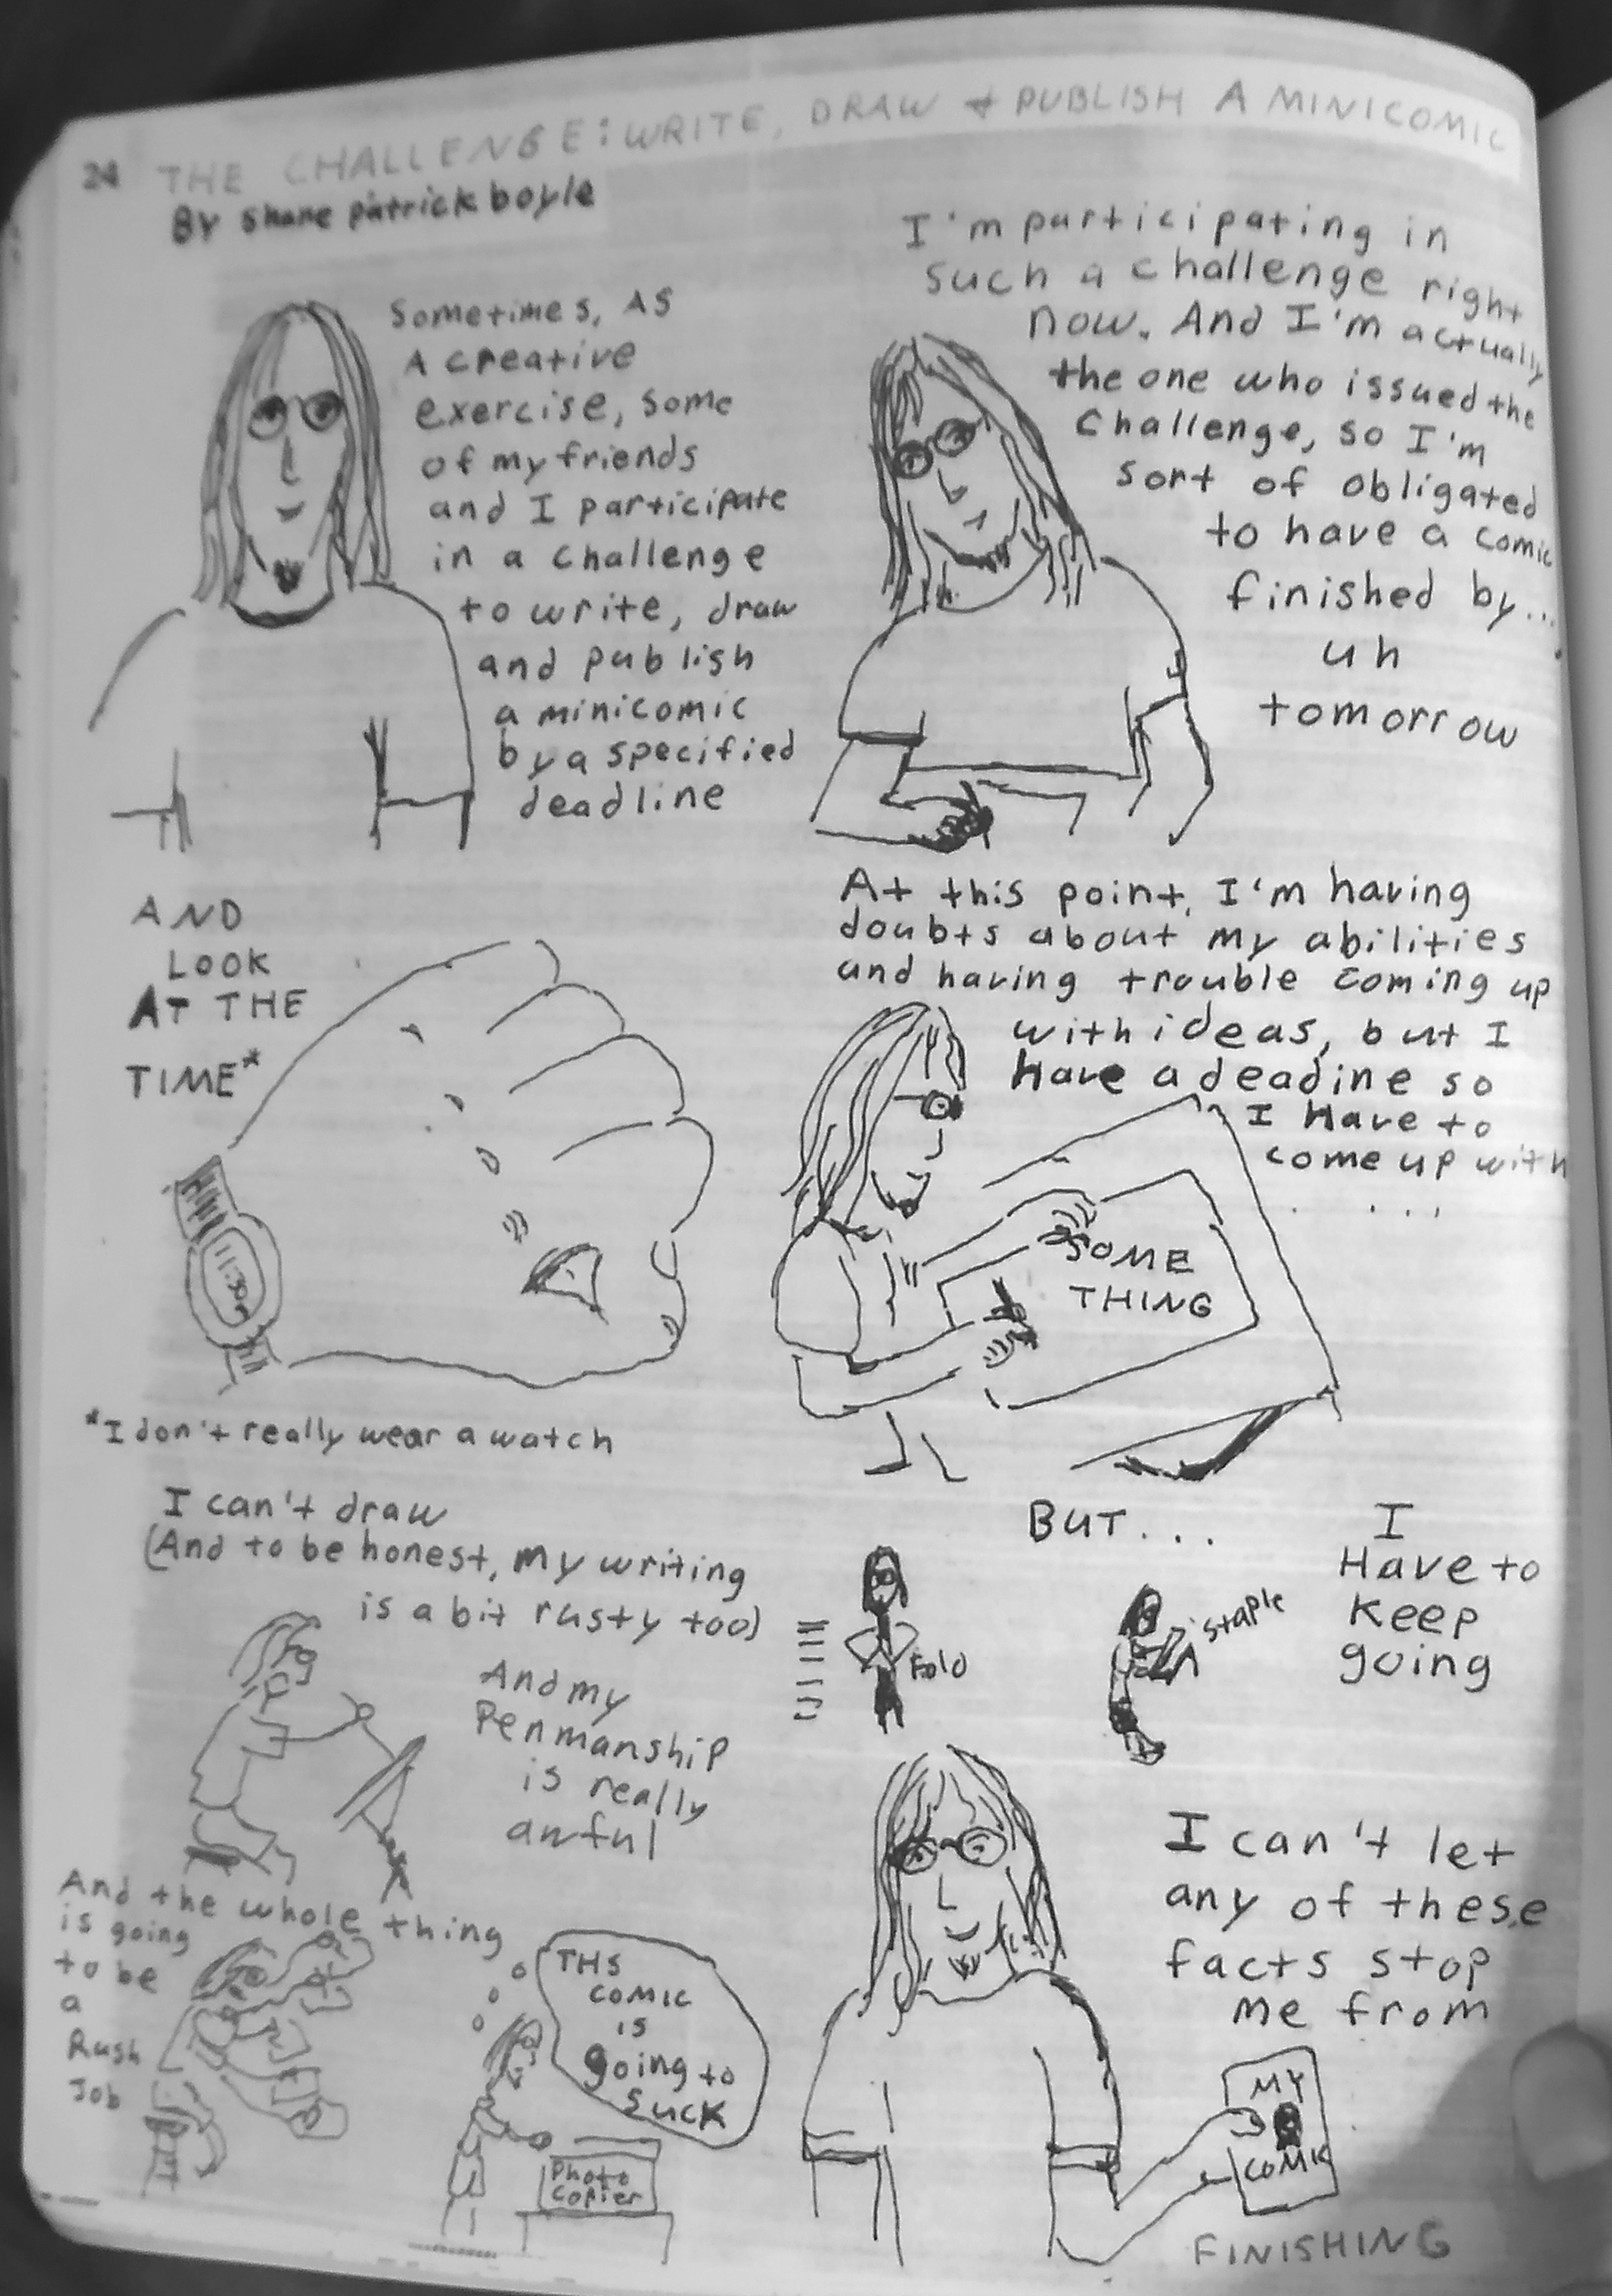 24 THE CHALLENGE: WRITE, DRAW + PUBLISH A MINICOMIC
BY Shane patrick boyle
Sometimes, AS
A creative
exercise, some
of my friends
and I participate
in a challenge
to write, draw
and publish
a minicomic
by a specified
deadline
I'm participating in
such a challenge right
now. And I'm actually
the one who issued the
Challenge, so I'm
sort of obligated
to have a comic
finished by...
uh
tomorrow
AND
LOOK
AT THE
TIME*
*I don't really wear a watch
At this point, I'm having
doubts about my abilities
and having trouble coming up
with ideas, but I
Have a deadine so
I Have to
come up with
....
SOME
THING
I can't draw
(And to be honest, my writing
is a bit rusty too)
And my
Penmanship
is really
awful
And the whole thing
is going
to be
a
Rush
Job
THS
COMIC
IS
going to
SUCK
Photo
Copier
BUT...
Fold
staple
I
Have to
Keep
going
I can't let
any of these
facts stop
me from
MY
COMIC
FINISHING